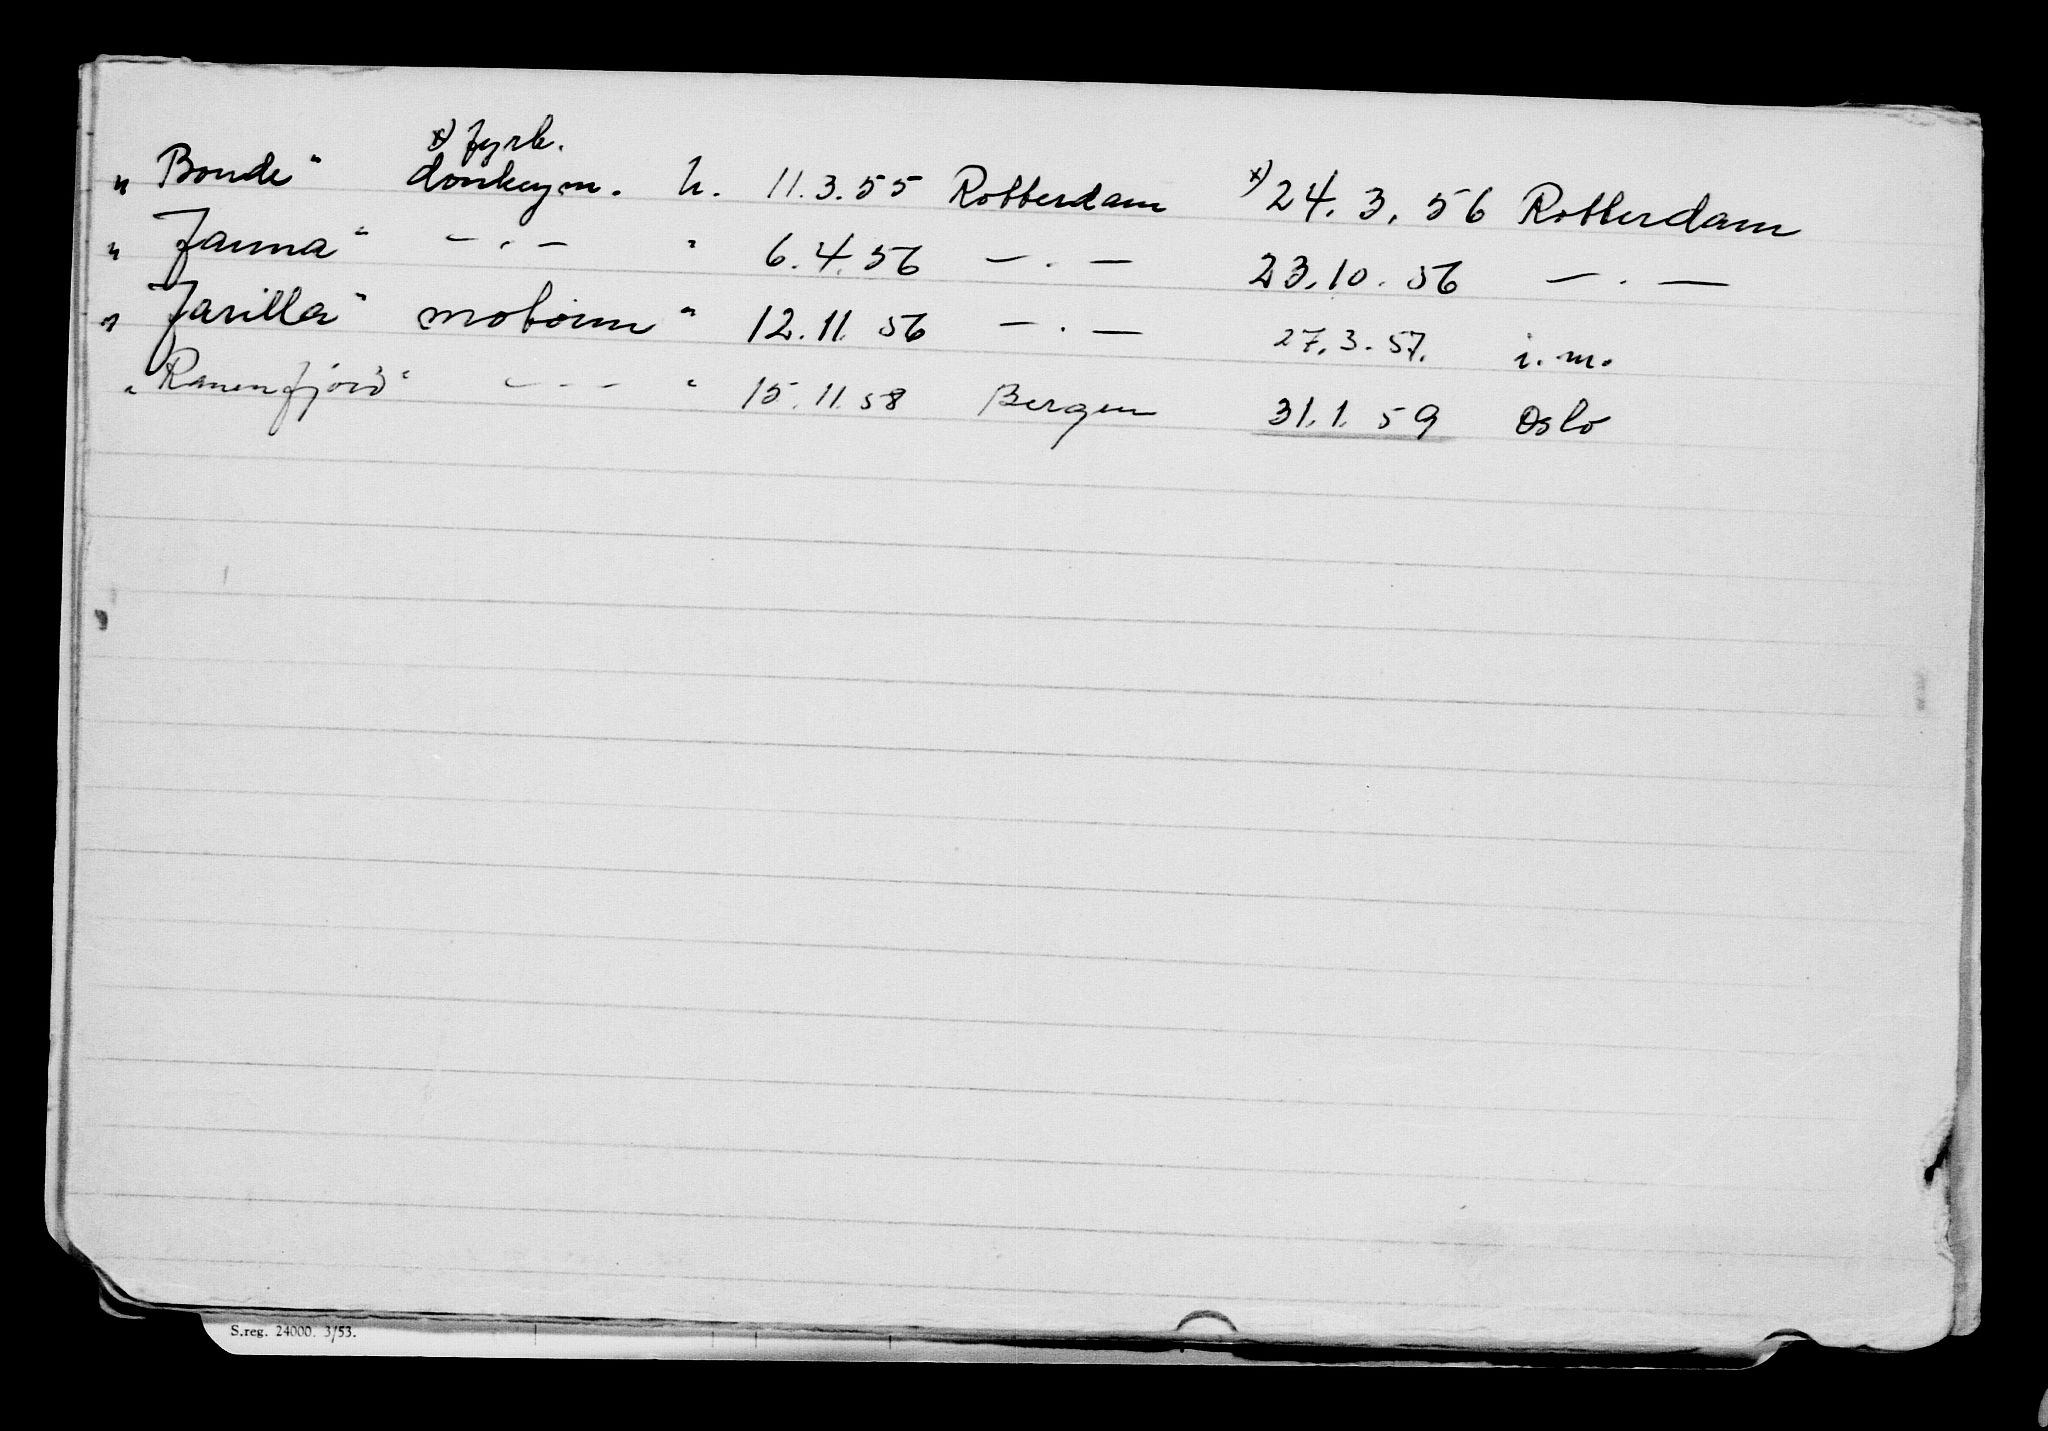 x) fyrb.
„ Bonde" donkeym. h. 11.3.55 Rotterdam x) 24.3.56 Rotterdam
„ Janna" — . — " 6.4.56 — . — 23.10.56 — . —
„ Jarilla" motorm " 12.11.56 — . — 27.3.57. i.m.
„ Ranenfjord" — - - — " 15.11.58 Bergen 31.1.59 Oslo
S.reg. 24000. 3/53.